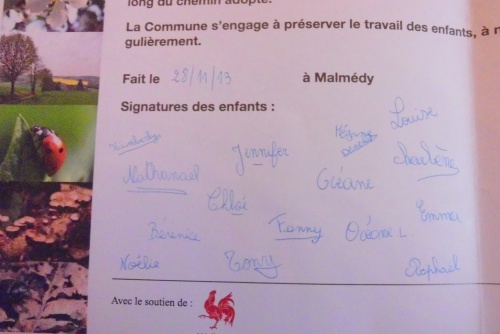 long du chemin adopté.
La Commune s'engage à préserver le travail des enfants, à
gulièrement.
Fait le 28/11/13 à Malmédy
Signatures des enfants :
Louise
Jennifer
Charlène
Nathanael
Océane
Chloé
Emma
Bérénice
Fanny
Océane L.
Noëlie
Tony
Raphaël
Avec le soutien de :